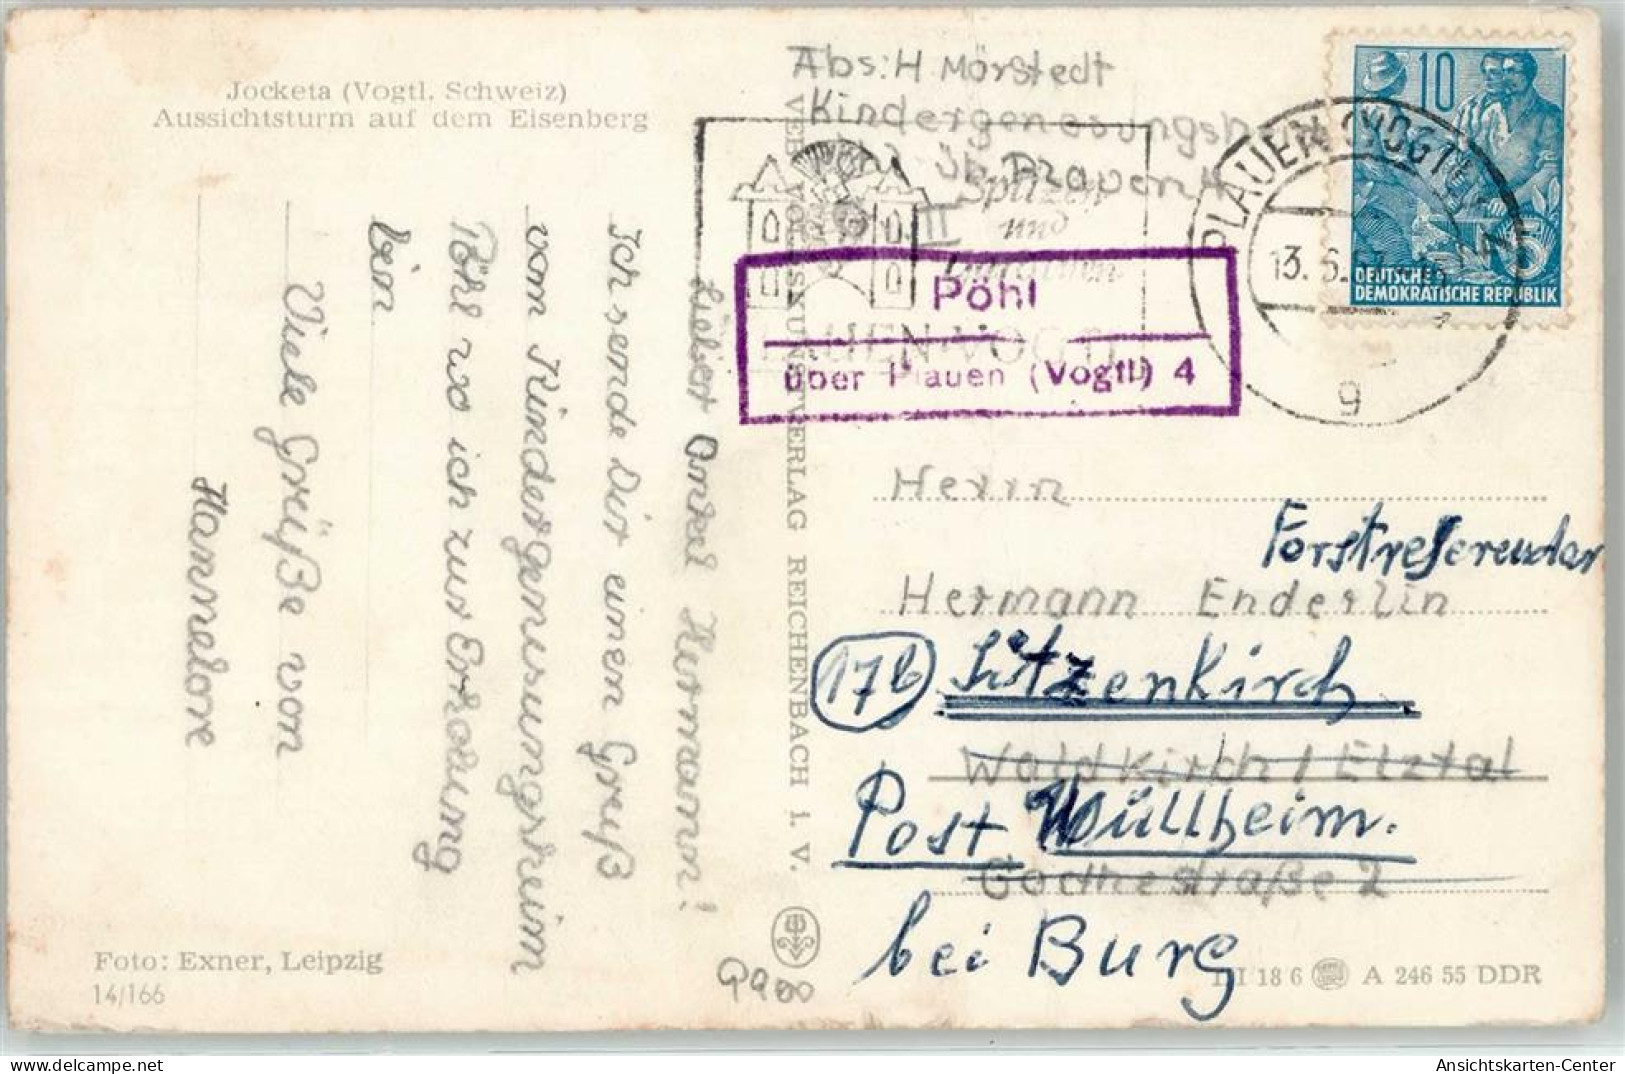 Jocketa (Vogtl. Schweiz)
Aussichtsturm auf dem Eisenberg
Lieber Onkel Hermann!
Ich sende Dir einen Gruß
vom Kindergenesungsheim
Pöhl wo ich zur Erholung
bin
Viele Grüße von
Hannelore
Foto: Exner, Leipzig
14/166
VEB VOLKSKUNSTVERLAG REICHENBACH i. V.
Abs: H Mörstedt
Kindergenesungsheim
Spitzen
und
Gardinen
PLAUEN·VOGTL
Pöhl
über Plauen (Vogtl) 4
PLAUEN (VOGTL)
13. 6.
g
10
5
DEUTSCHE
DEMOKRATISCHE REPUBLIK
Herrn
Forstreferendar
Hermann Enderlin
17b Sitzenkirch
Waldkirch / Elztal
Post Müllheim.
Goethestraße 2
bei Burg
III 18 6 A 246 55 DDR
AK-Ansichtskarten.de
Ansichtskarten-Center